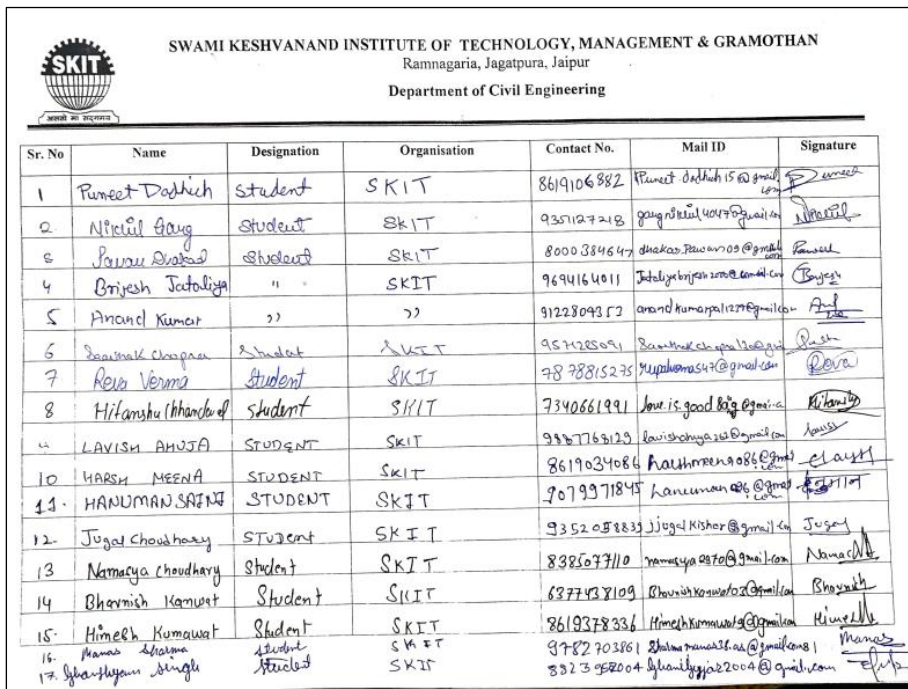 SKIT
असतो मा सद्गमय
SWAMI KESHVANAND INSTITUTE OF TECHNOLOGY, MANAGEMENT & GRAMOTHAN
Ramnagaria, Jagatpura, Jaipur
Department of Civil Engineering
Sr. No Name Designation Organisation Contact No. Mail ID Signature
1 Puneet Dadhich Student SKIT 8619106882 Puneet.dadhich15@gmail.com Puneet
2. Nikhil Garg Student SKIT 9351127218 gargnikhil4047@gmail.com Nikhil
3 Pavan Dhakad Student SKIT 8000384647 dhakar.Pawan09@gmail.com
4 Brijesh Jataliya " SKIT 9694164011 Jataliyabrijesh2000@gmail.com Brijesh
5 Anand Kumar " " 9122809353 anandkumarpal1277@gmail.com
6 Saarthak Chopra Student SKIT 9571285091
7 Reva Verma Student SKIT 7878815275 rupalvermas47@gmail.com Reva
8 Hitanshu Chhandwal Student SKIT 7340661991 love.is.good Hitanshu
LAVISH AHUJA STUDENT SKIT 9887768129 lavishahuja262@gmail.com
10 HARSH MEENA STUDENT SKIT 8619034086 harshmeena086@gmail.com
11. HANUMAN SAINI STUDENT SKIT 9079971845 हनुमान
12. Jugal Choudhary STUDENT SKIT 9352058839 jjugalkishor@gmail.com Jugal
13 Namasya Choudhary Student SKIT 8385077110 namasya2970@gmail.com
14 Bhavnish Kanwat Student SKIT 6377438109 Bhavnishkanwat02@gmail.com Bhavnish
15. Himesh Kumawat Student SKIT 8619378336 Himeshkumawat9@gmail.com Himesh
16. Manas Sharma Student SKIT 9782703861 Manas
17. Ighanshyam Singh Student SKIT